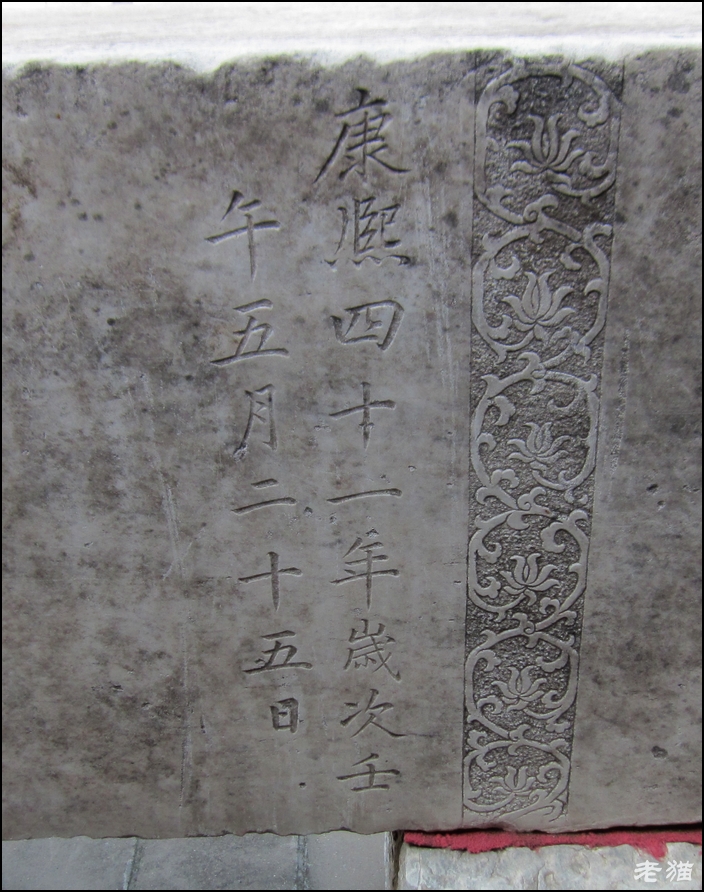 康熙四十一年歲次壬
午五月二十五日
老猫